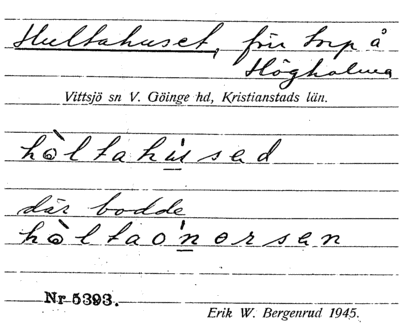 Hultahuset, förr torp å
Högholma
Vittsjö sn V. Göinge hd, Kristianstads län.
hòltahú̱sad
där bodde
hòltaóṉersan
Nr 5393.
Erik W. Bergenrud 1945.